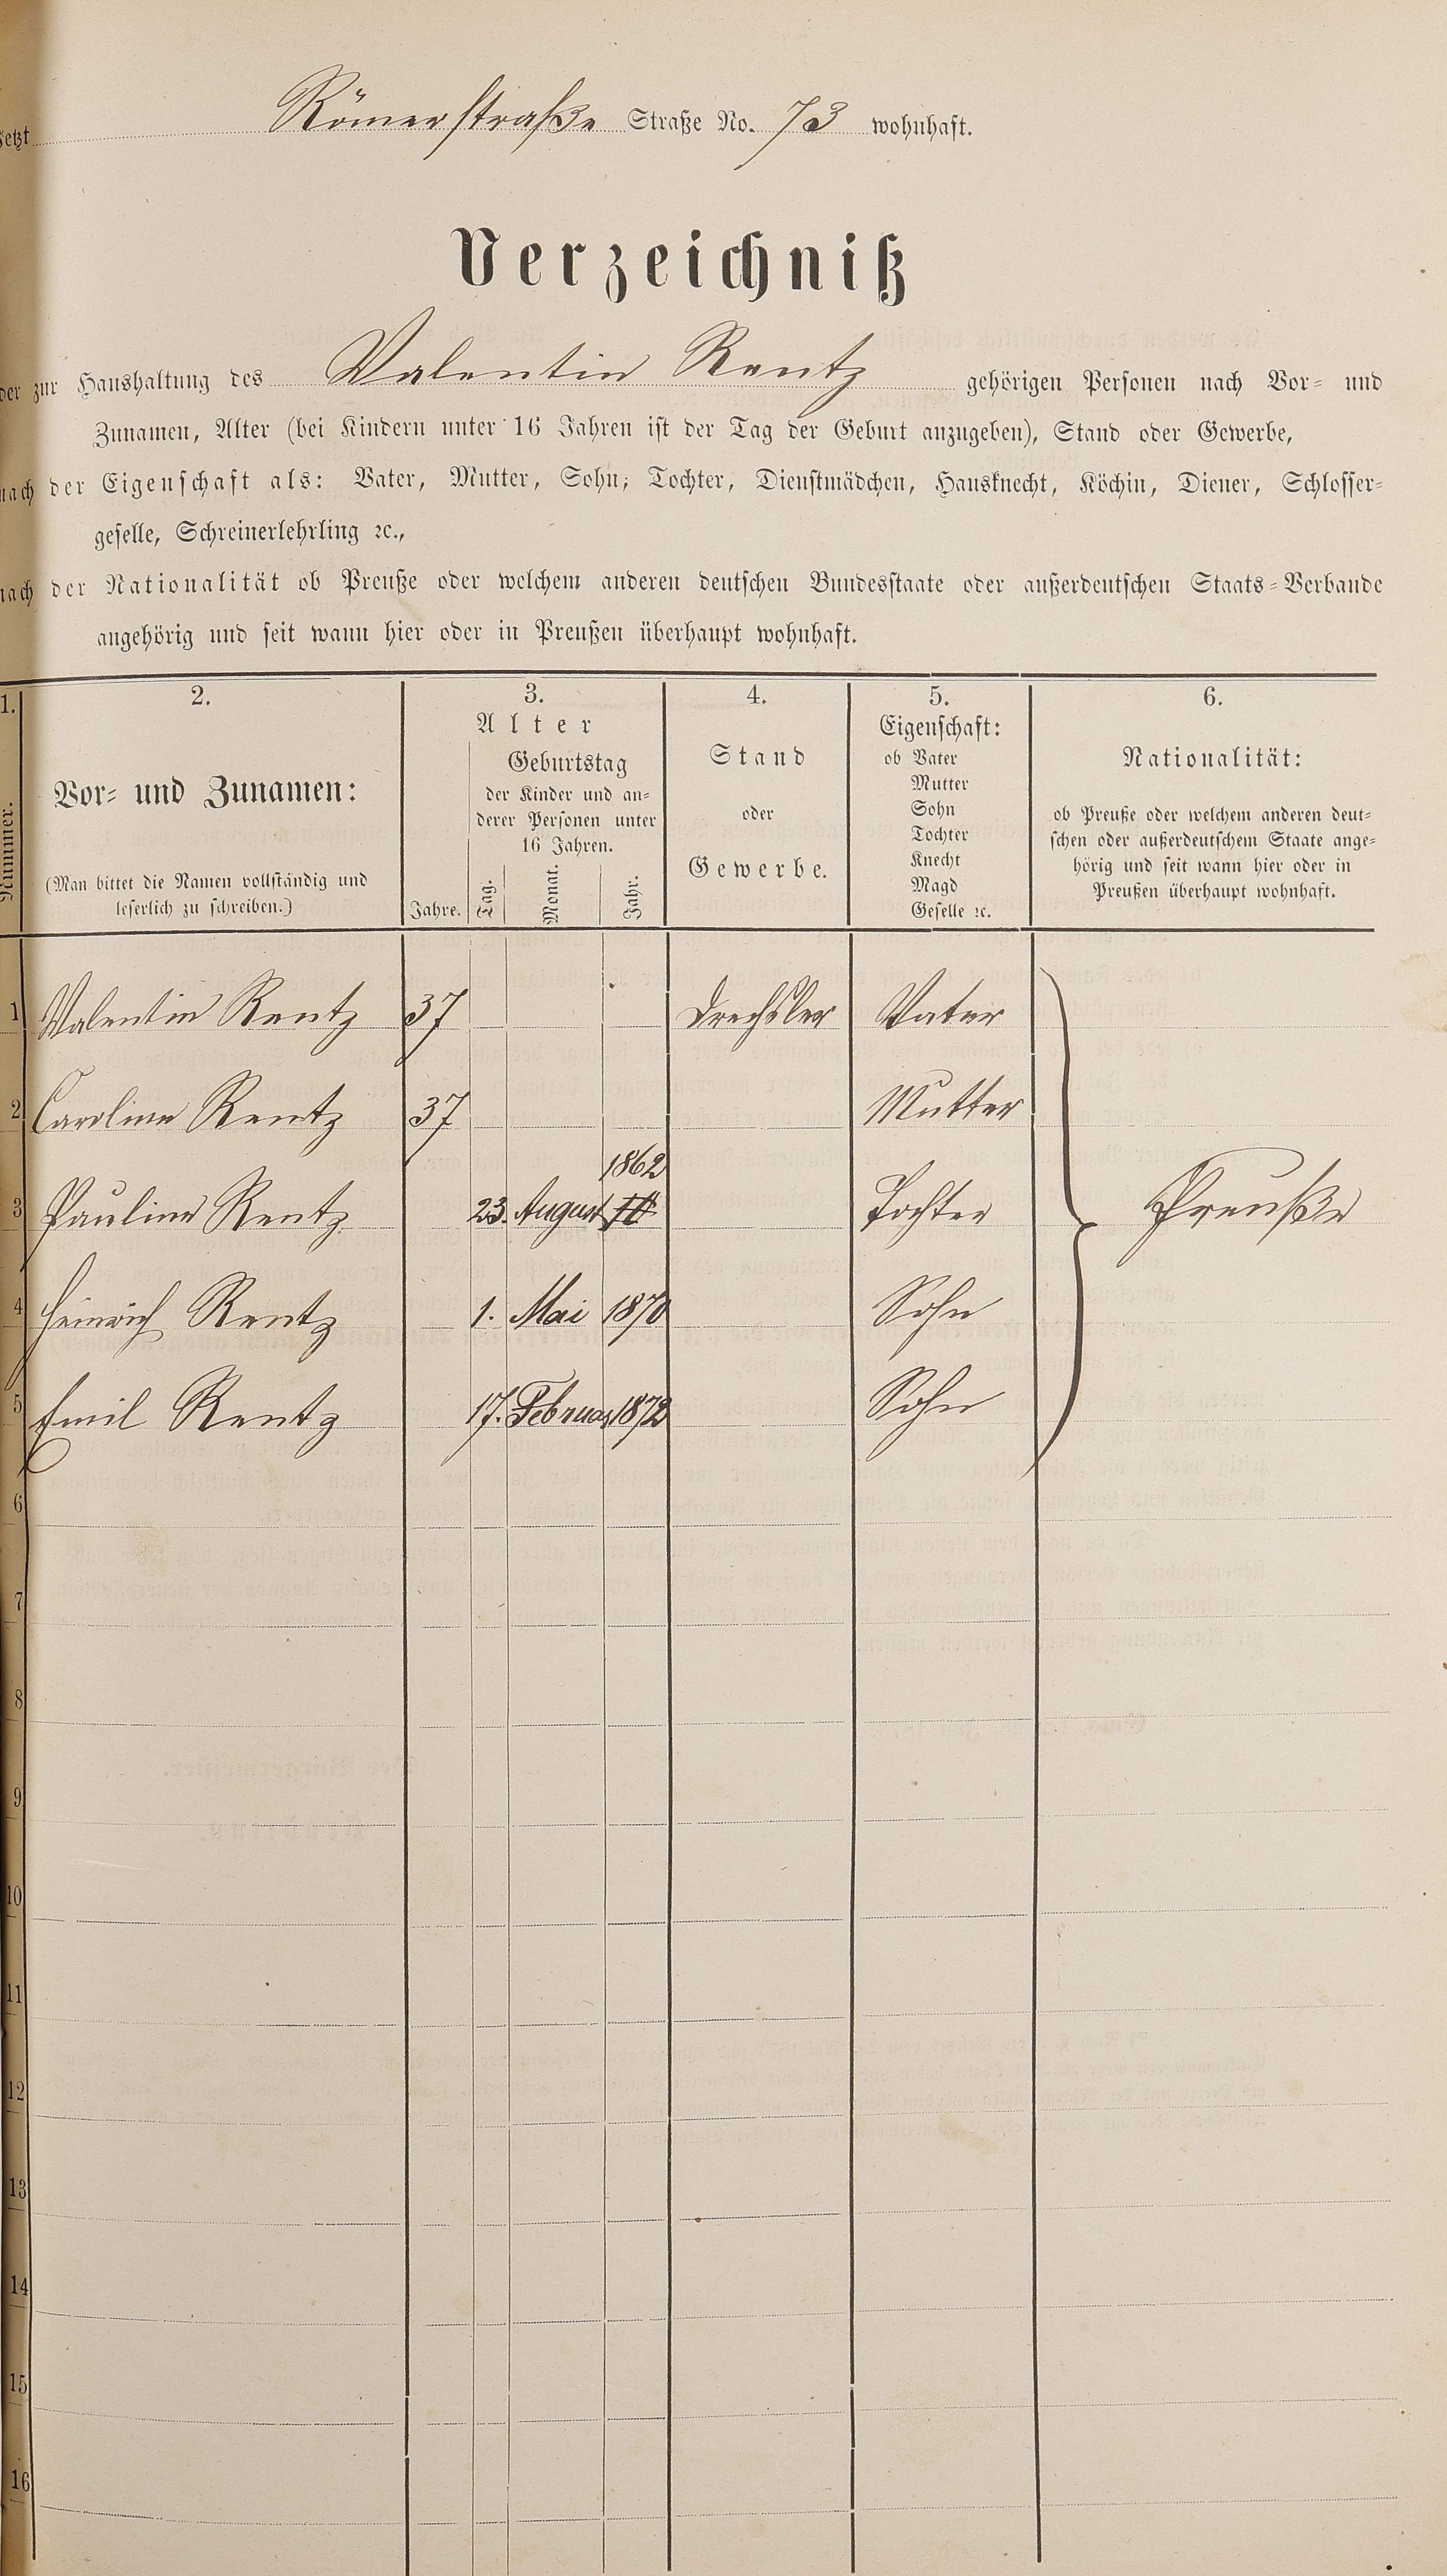 jetzt Römerstraße Straße No. 73 wohnhaft.
Verzeichniß
der zur Haushaltung des Valentin Rentz gehörigen Personen nach Vor- und
Zunamen, Alter (bei Kindern unter 16 Jahren ist der Tag der Geburt anzugeben), Stand oder Gewerbe,
nach der Eigenschaft als: Vater, Mutter, Sohn, Tochter, Dienstmädchen, Hausknecht, Köchin, Diener, Schlosser-
geselle, Schreinerlehrling ꝛc.,
nach der Nationalität ob Preuße oder welchem anderen deutschen Bundesstaate oder außerdeutschen Staats-Verbande
angehörig und seit wann hier oder in Preußen überhaupt wohnhaft.
1.
Nummer.
2.
Vor- und Zunamen:
(Man bittet die Namen vollständig und
leserlich zu schreiben.)
3.
Alter
Jahre.
Geburtstag
der Kinder und an-
derer Personen unter
16 Jahren.
Tag. Monat. Jahr.
4.
Stand
oder
Gewerbe.
5.
Eigenschaft:
ob Vater
Mutter
Sohn
Tochter
Knecht
Magd
Geselle ꝛc.
6.
Nationalität:
ob Preuße oder welchem anderen deut-
schen oder außerdeutschem Staate ange-
hörig und seit wann hier oder in
Preußen überhaupt wohnhaft.
1 Valentin Rentz 37 Drechsler Vater
2 Caroline Rentz 37 Mutter
1862
3 Pauline Rentz 23. August Tochter Preuße
4 Heinrich Rentz 1. Mai 1870 Sohn
5 Emil Rentz 17. Februar 1872 Sohn
6
7
8
9
10
11
12
13
14
15
16